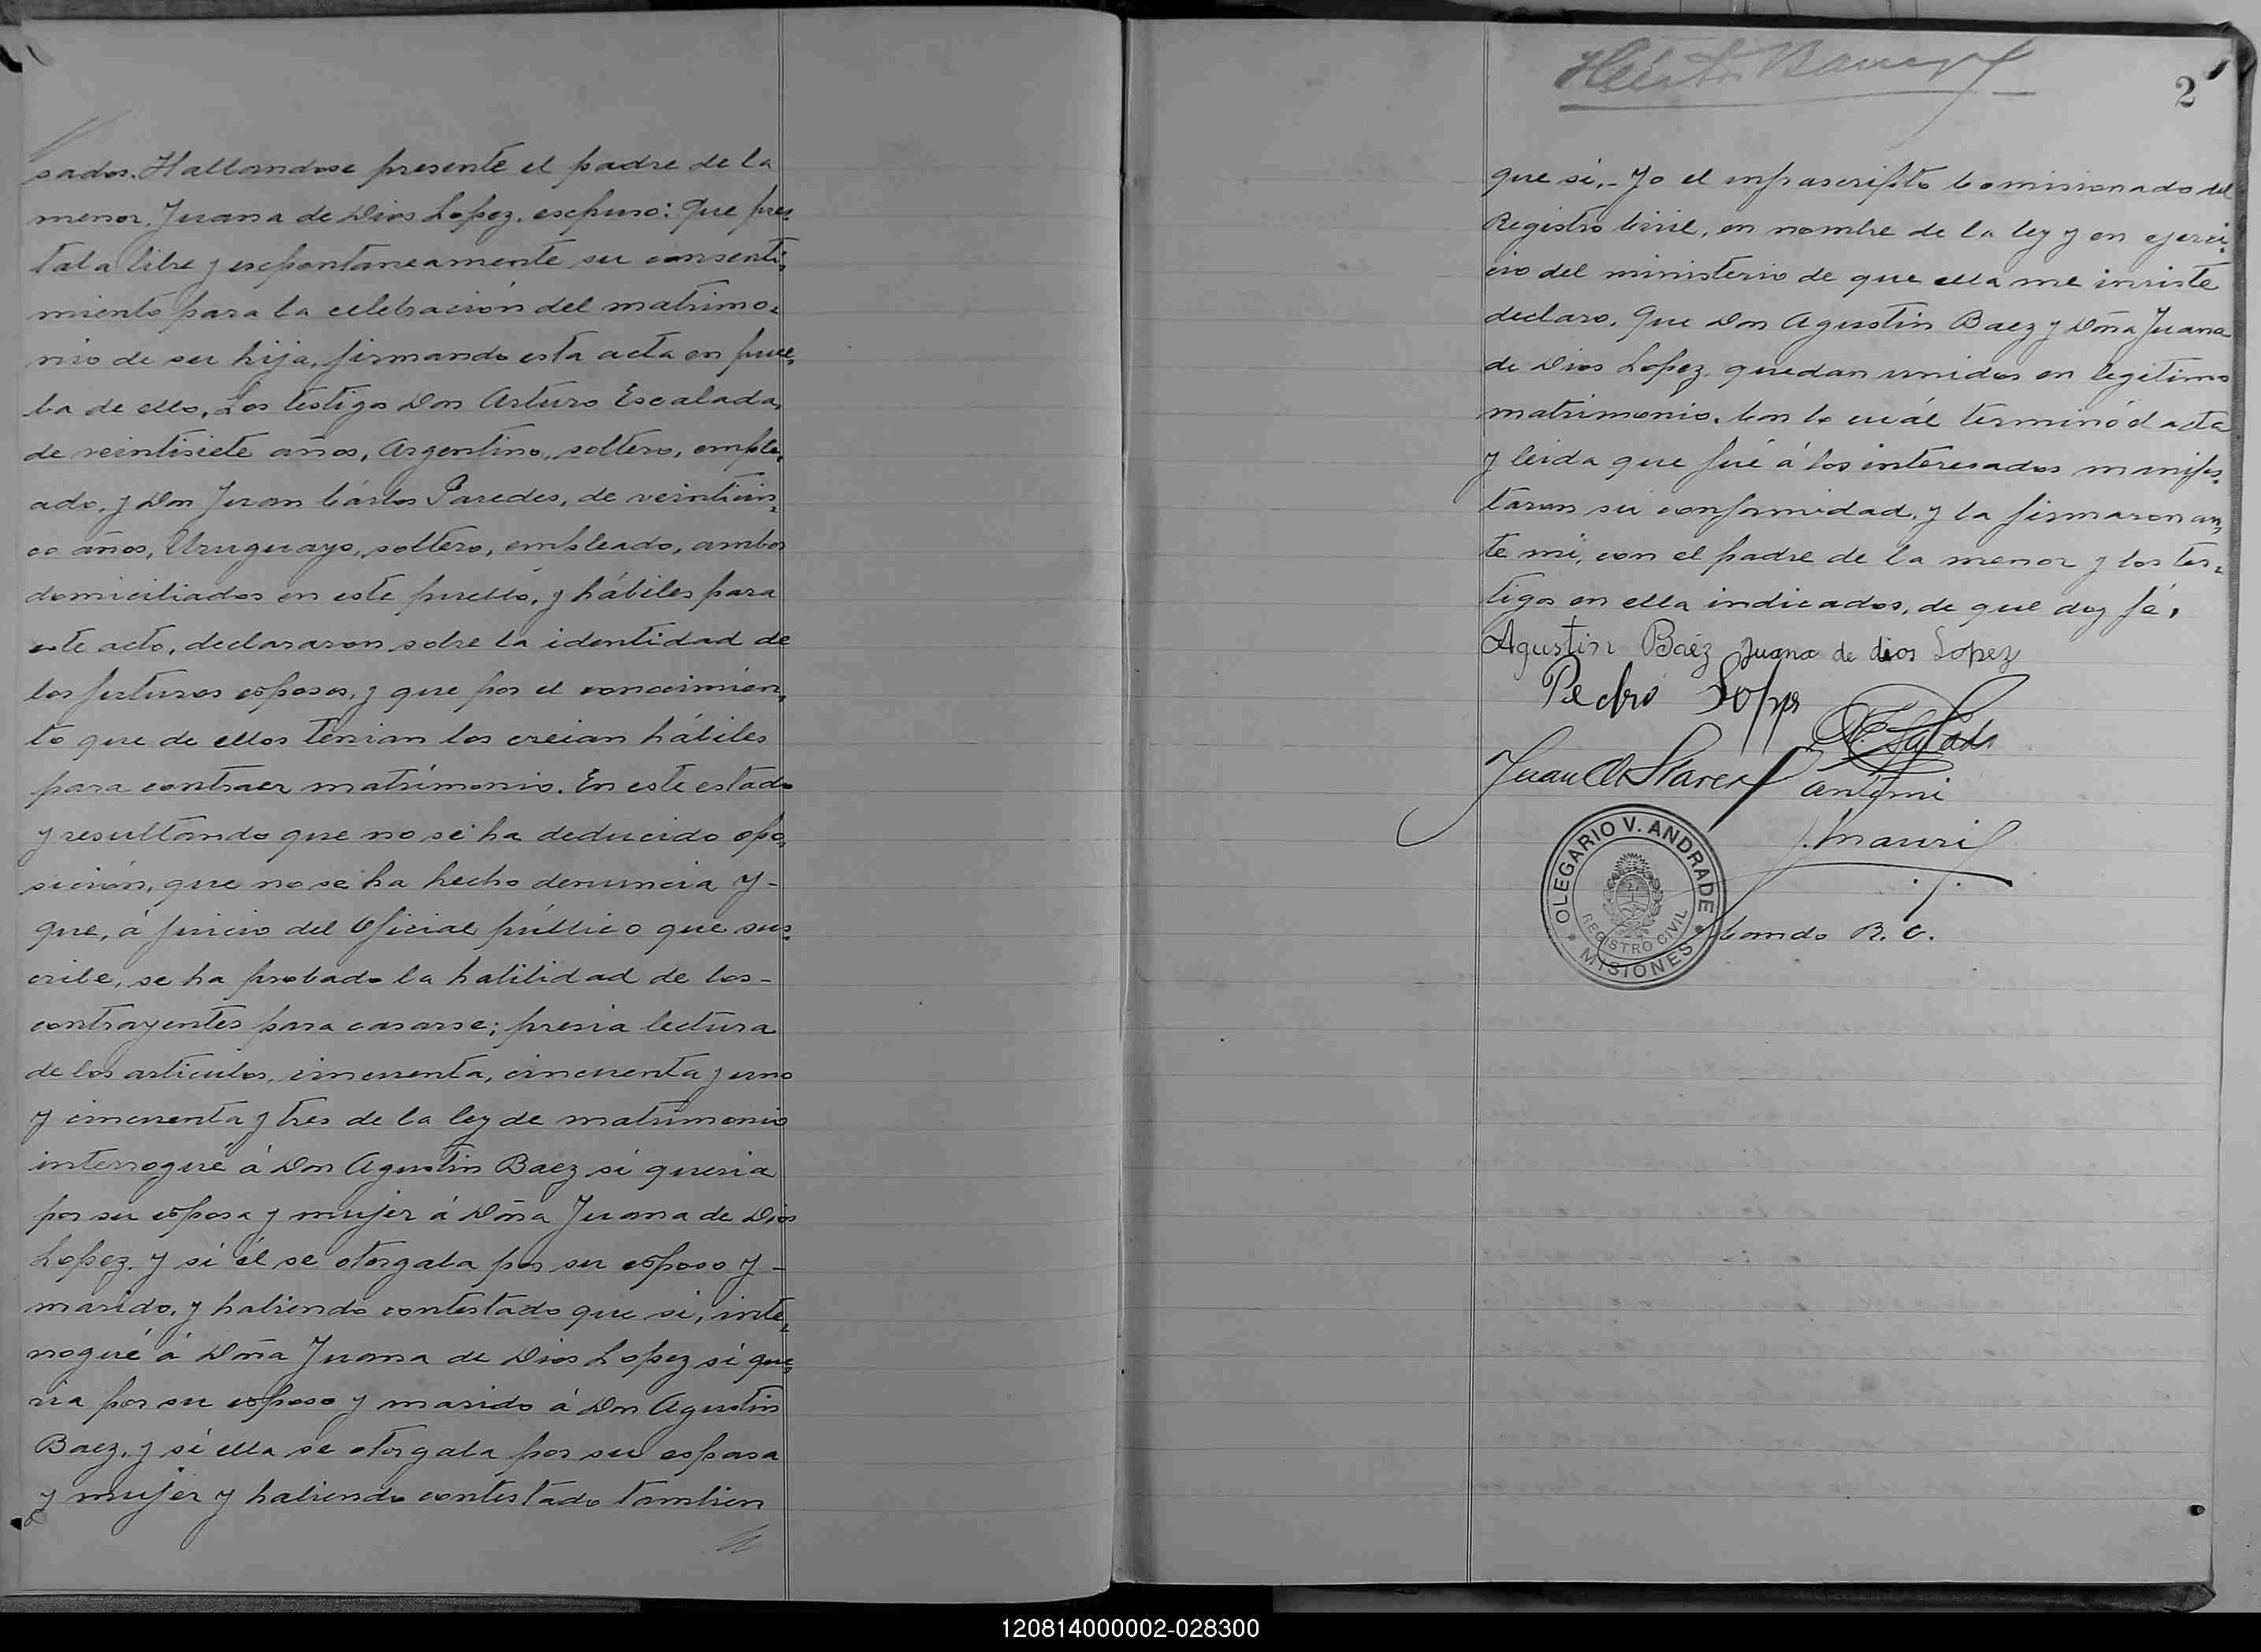 sados. Hallandose presente el padre de la
menor, Juana de Dios Lopez, espuso: Que pres=
taba libre y espontaneamente su consenti=
miento para la celebración del matrimo=
nio de su hija, firmando esta acta en prue=
ba de ello. Los testigos Don Arturo Escalada,
de veintisiete años, Argentino, soltero, emple=
ado, y Don Juan Cárlos Paredes, de veinticin=
co años, Uruguayo, soltero, empleado, ambos
domiciliados en este pueblo, y hábiles para
este acto, declararon sobre la identidad de
los futuros esposos, y que por el conocimien=
to que de ellos tenian los creian hábiles
para contraer matrimonio. En este estado
y resultando que no se ha deducido opo=
sición, que no se ha hecho denuncia y -
que, á juicio del Oficial público que sus=
cribe, se ha probado la habilidad de los -
contrayentes para casarse; previa lectura
de los articulos, cincuenta, cincuenta y uno
y cincuenta y tres de la ley de matrimonio
interrogué á Don Agustin Baez si queria
por su esposa y mujer á Doña Juana de Dios
Lopez, y si él se otorgaba por su esposo y -
marido, y habiendo contestado que si, inte=
rrogué á Doña Juana de Dios Lopez si que=
ria por su esposo y marido á Don Agustin
Baez, y si ella se otorgaba por su esposa
y mujer y habiendo contestado tambien
2
que si. - Yo el infrascripto Comisionado del
Registro Civil, en nombre de la ley y en ejerci=
cio del ministerio de que ella me inviste
declaro, Que Don Agustin Baez y Doña Juana
de Dios Lopez, quedan unidos en legitimo
matrimonio. Con lo cuál terminó el acta
y leida que fué á los interesados manifes=
taron su conformidad, y la firmaron an=
te mi, con el padre de la menor y los tes=
tigos en ella indicados, de que doy fé.
Agustin Baéz Juana de dios Lopez
Pedro Lopez
Juan C. Paredes
antemi
OLEGARIO V. ANDRADE
REGISTRO CIVIL
* MISIONES *
Comdo R. C.
120814000002-028300